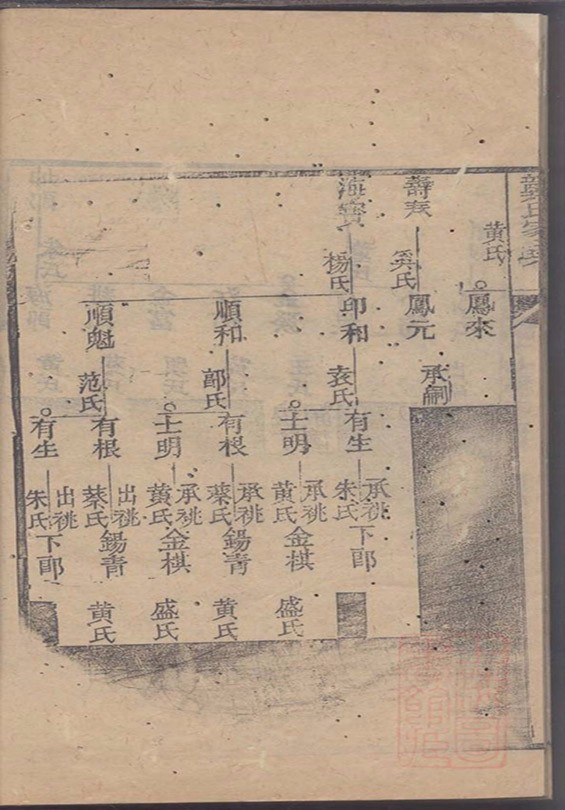 黃氏
鳳來
壽友
吳氏
鳳元
承嗣
海寶
楊氏
印和
袁氏
有生
承祧
朱氏
下郎
士明
承祧
黃氏
金棋
盛氏
順和
鄒氏
有根
承祧
蔡氏
錫青
黃氏
士明
承祧
黃氏
金棋
盛氏
順魁
范氏
有根
出祧
蔡氏
錫青
黃氏
有生
出祧
朱氏
下郎